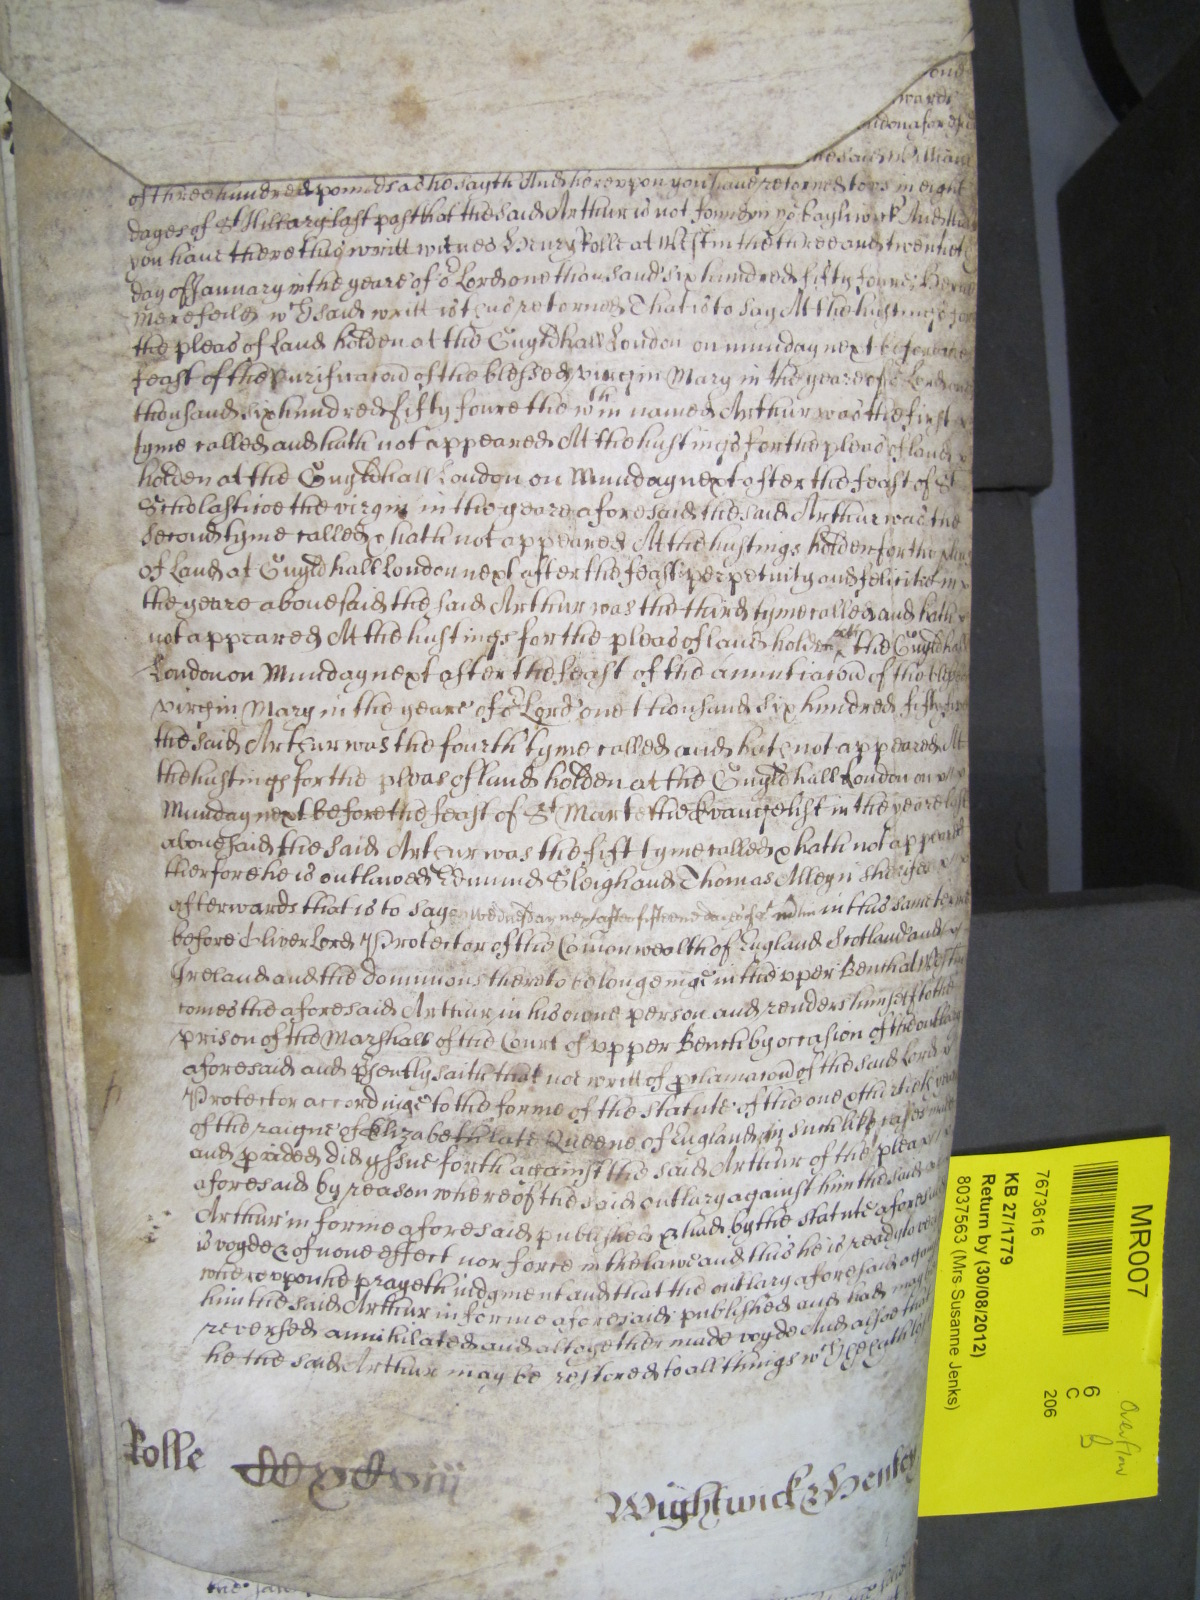 ond
wards
London aforesaid
the said William
of three hundred pounds as he sayth And hereupon you haue retorned to vs in eight
dayes of St Hillary last past that the said Arthur is not found in yor Bayliwick And
you haue there this writt witnes Henry Rolle at Westm the three and twentieth
day of January in the yeare of or Lord one thousand six hundred fifty foure
wch said writt is thus retorned That is to say At the hustings for
the pleas of Land holden at the Guyldhall London on munday next before the
feast of the Purificacon of the blessed virgin Mary in the yeare of or Lord one
thousand six hundred fifty foure the wthin named Arthur was the first
tyme called and hath not appeared At the hustings for the pleas of land
holden at the Guyldhall London on Munday next after the feast of St
Scholasticae the virgin in the yeare aforesaid the said Arthur was the
second tyme called & hath not appeared At the hustings holden for the pleas
of Land at Guyldhall London next after the feast perpetuity and felicitie in
the yeare abouesaid the said Arthur was the third tyme called and hath
not appeared At the hustings for the pleas of land holden att the Guyldhall
London on Munday next after the feast of the annuntiacon of the blessed
virgin Mary in the yeare of or Lord one thousand six hundred fifty five
the said Arthur was the fourth tyme called and hath not appeared At
the hustings for the pleas of land holden at the Guyldhall London on
Munday next before the feast of St Marke the Evangelist in the yeare last
abouesaid the said Arthur was the fift tyme called & hath not appeared
therfore he is outlawed Edmund Sleigh and Thomas Alleyn sheriffes
afterwards that is to say Wednesday next after fifteene dayes of in this same terme
before Oliver Lord Protector of the Comonwealth of England Scotland and
Ireland and the dominions thereto belonginge in the vpper Bench at Westm
comes the aforesaid Arthur in his owne person and renders himself to the
prison of the Marshall of the Court of vpper Bench by occasion of the outlary
aforesaid and psently saith that not writt of pclamacon of the said Lord
Protector accordinge to the forme of the statute of the one & thirtieth yeare
of the raigne of Elizabeth late Queene of England in such like cases made
and pvided did yssue forth against the said Arthur of the plea
aforesaid by reason whereof the said outlary against him the said
Arthur in forme aforesaid published & had by the statute aforesaid
is voyde & of none effect nor force in the lawe and this he is ready to
wherevpon he prayeth iudgment and that the outlary aforesaid against
him the said Arthur in forme aforesaid published and had may be
reversed annihilated and altogether made voyde And alsoe that
he the said Arthur may be restored to all things wch he hath lost
Rolle
Wightwick & Henley
MR007
6
C
206
Overflow
B
7673616
KB 27/1779
Return by (30/08/2012)
8037563 (Mrs Susanne Jenks)